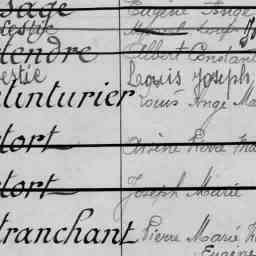 Eugène Ange
tendre Albert Constant
Louis Joseph
inturier Louis Ange Ma
tort Arsène Pierre Ma
tort Joseph Marie
tranchant Pierre Marie
Eugène